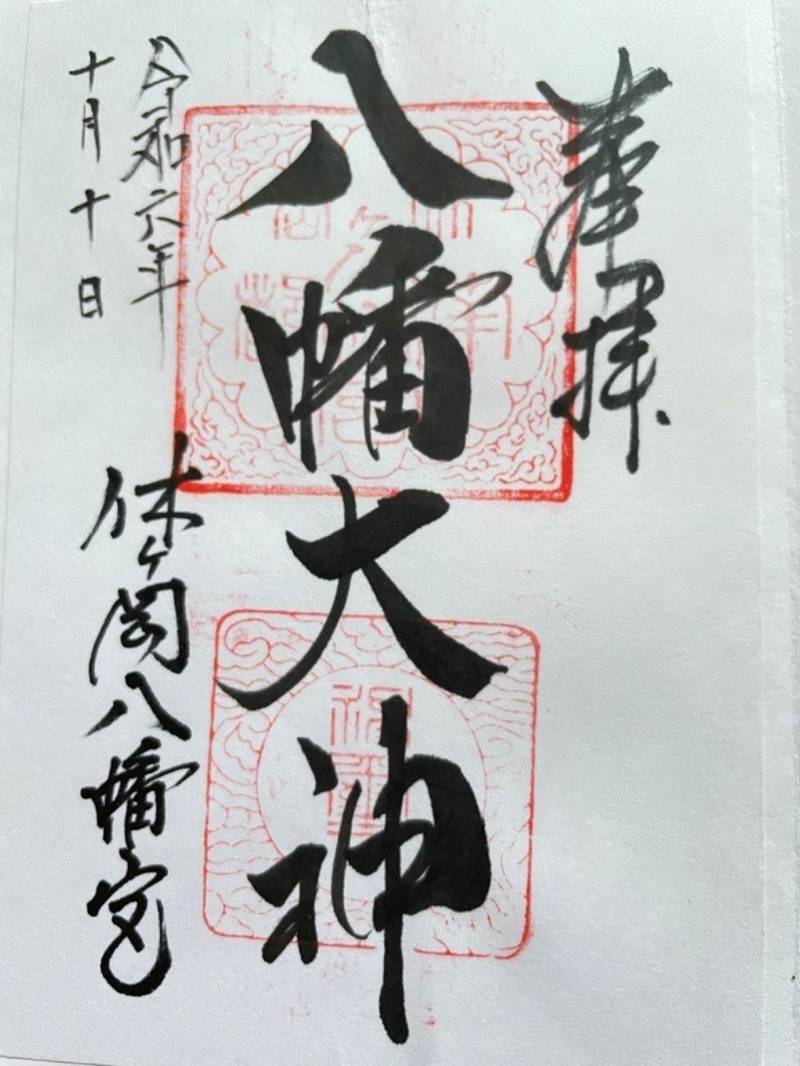 奉拝
八幡大神
令和六年
十月十日
休ヶ岡八幡宮